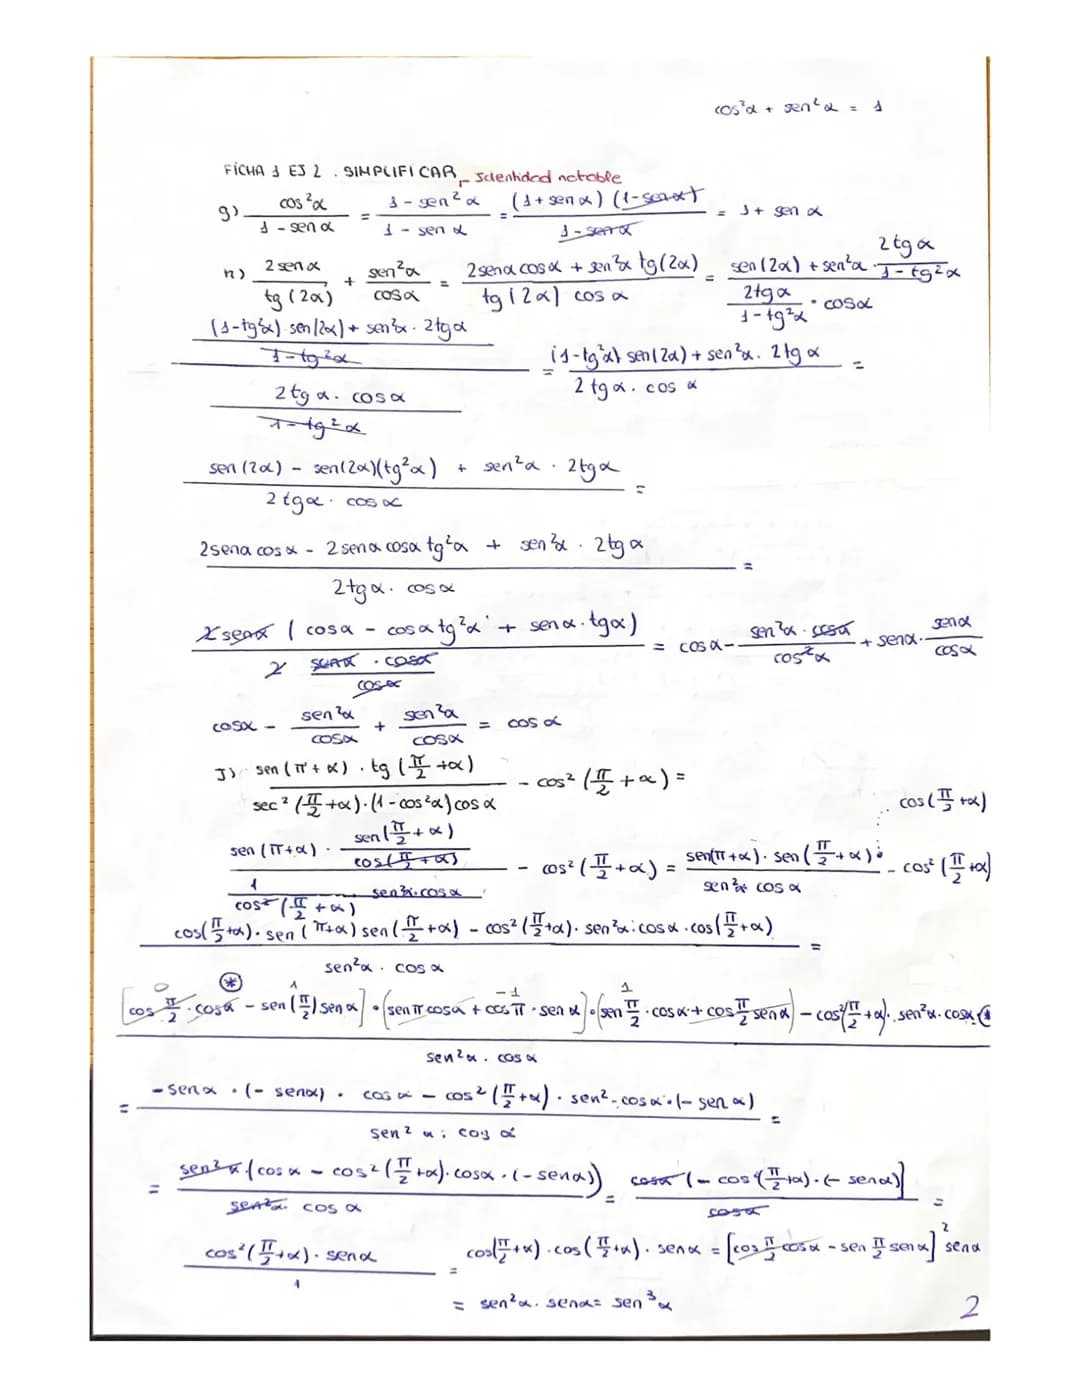 cos²α + sen²α = 1
FICHA 1 EJ 2 . SIMPLIFICAR
Identidad notable
g) cos²α / (1 - sen α) = (1 - sen²α) / (1 - sen α) = (1 + sen α) (1 - sen α) / (1 - sen α) = 1 + sen α
h) 2 sen α / tg (2α) + sen²α / cos α = (2 sen α cos α + sen²α tg(2α)) / (tg (2α) cos α) = (sen (2α) + sen²α · 2 tg α / (1 - tg²α)) / (2tg α / (1 - tg²α) · cos α)
((1 - tg²α) sen (2α) + sen²α · 2tg α) / (1 - tg²α) / (2 tg α · cos α / (1 - tg²α)) = ((1 - tg²α) sen (2α) + sen²α · 2tg α) / (2 tg α · cos α) =
(sen (2α) - sen (2α)(tg²α) + sen²α · 2tg α) / (2 tg α · cos α) =
(2 sen α cos α - 2 sen α cos α tg²α + sen²α · 2tg α) / (2 tg α · cos α) =
2 sen α (cos α - cos α tg²α + sen α · tg α) / (2 sen α · cos α / cos α) = cos α - sen²α · cos α / cos²α + sen α · sen α / cos α
cos α - sen²α / cos α + sen²α / cos α = cos α
J) sen (π + α) · tg (π/2 + α) / (sec² (π/2 + α) · (1 - cos²α) cos α) - cos² (π/2 + α) =
cos (π/2 + α)
sen (π+α) · sen (π/2 + α) / cos (π/2 + α) / (1 / cos² (π/2 + α) · sen²α · cos α) - cos² (π/2 + α) = sen(π+α) · sen (π/2 + α) · / (sen²α cos α) - cos² (π/2 + α)
(cos(π/2 + α) · sen (π+α) sen (π/2 + α) - cos² (π/2 + α) · sen²α · cos α · cos (π/2 + α)) / (sen²α · cos α) =
0 * 1 -1 1
([cos π/2 · cos α - sen (π/2) sen α] · [sen π cos α + cos π · sen α] · [sen π/2 · cos α + cos π/2 sen α] - cos² (π/2 + α) · sen²α · cos α *) / (sen²α · cos α)
= (- sen α · (- sen α) · cos α - cos² (π/2 + α) · sen² · cos α · (- sen α)) / (sen²α · cos α) =
= sen²α (cos α - cos² (π/2 + α) · cos α · (- sen α)) / (sen²α · cos α) = cos α (- cos² (π/2 + α) · (- sen α)] / cos α =
cos² (π/2 + α) · sen α / 1 = cos (π/2 + α) · cos (π/2 + α) · sen α = [cos π/2 cos α - sen π/2 sen α]² sen α
= sen²α · sen α = sen³α
2